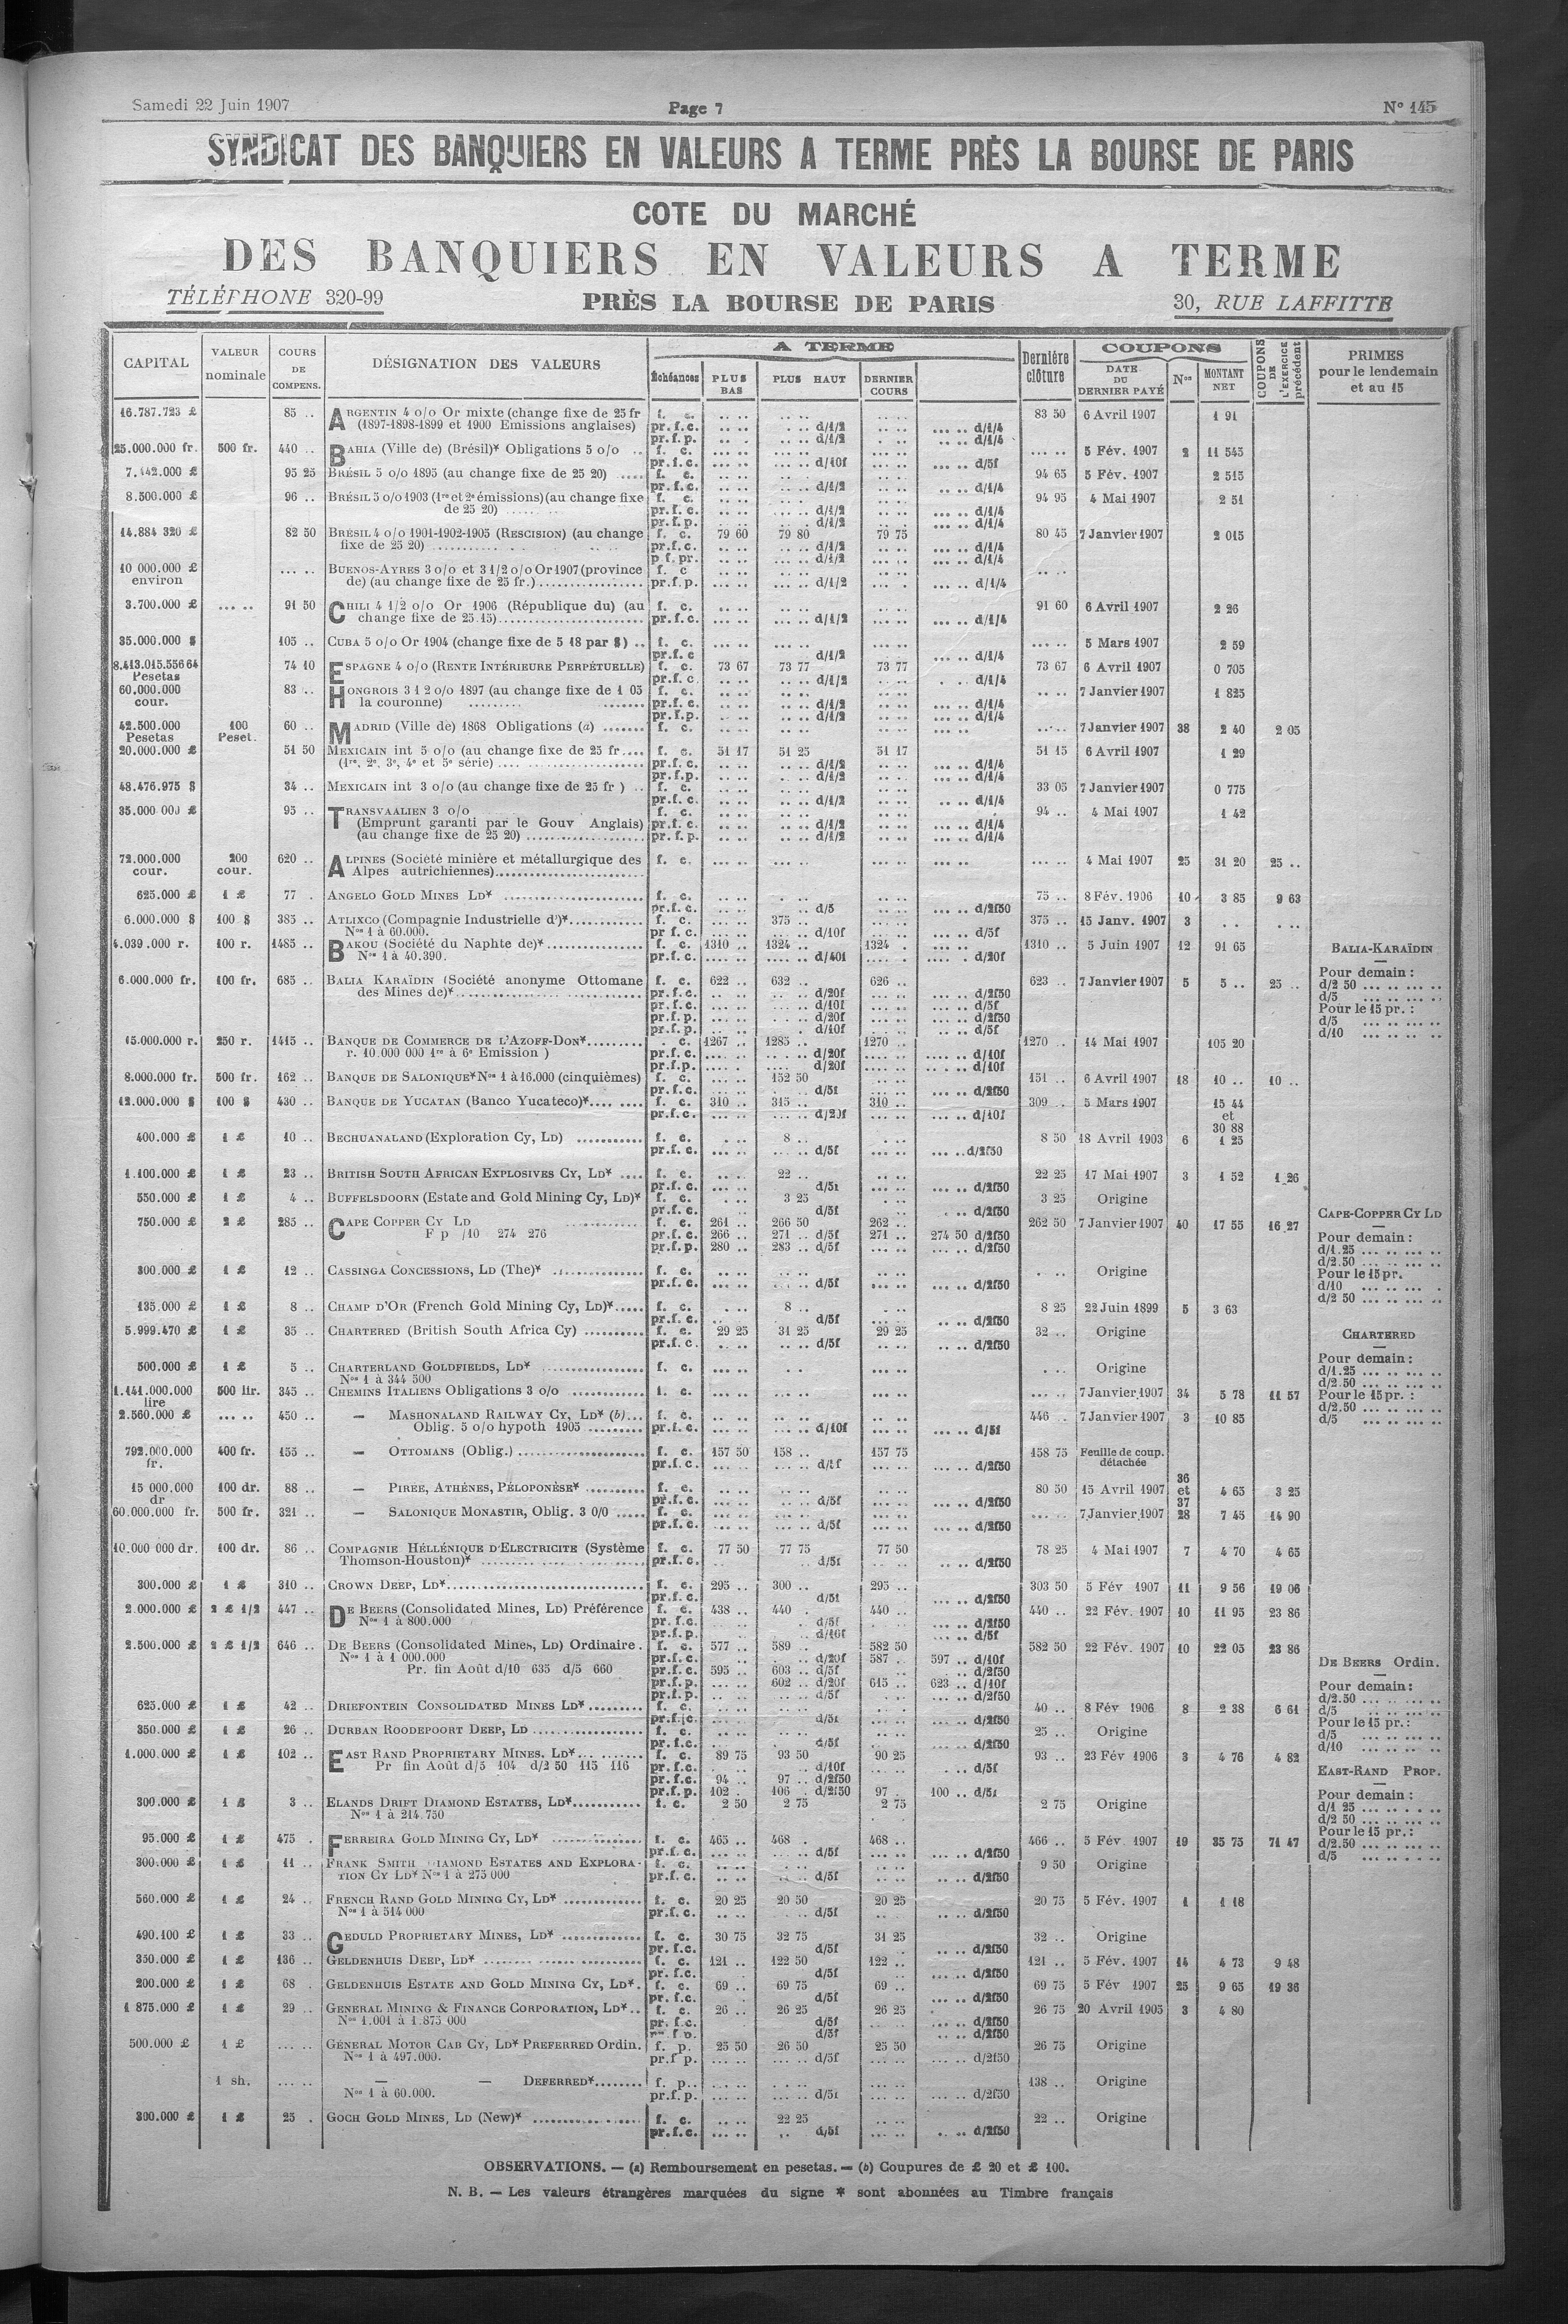 Samedi 22 Juin 1907 Page 7 N° 145
SYNDICAT DES BANQUIERS EN VALEURS A TERME PRÈS LA BOURSE DE PARIS
COTE DU MARCHÉ
DES BANQUIERS EN VALEURS A TERME
TÉLÉPHONE 320-99 PRÈS LA BOURSE DE PARIS 30, RUE LAFFITTE
CAPITAL VALEUR nominale COURS DE COMPENS. DÉSIGNATION DES VALEURS A TERME Échéances PLUS BAS PLUS HAUT DERNIER COURS Dernière clôture COUPONS DATE DU DERNIER PAYÉ Nos MONTANT NET COUPONS DE L'EXERCICE précédent PRIMES pour le lendemain et au 15
16.787.723 £ 85 .. ARGENTIN 4 o/o Or mixte (change fixe de 25 fr f. c. 83 50 6 Avril 1907 1 91
(1897-1898-1899 et 1900 Emissions anglaises) pr.f.c. d/1/2 d/1/4
pr.f.p. d/1/2 d/1/4
25.000.000 fr. 500 fr. 440 .. BAHIA (Ville de) (Brésil)* Obligations 5 o/o .. f. c. 5 Fév. 1907 2 11 545
pr.f.c. d/10f d/5f
7.442.000 £ 95 25 BRÉSIL 5 o/o 1895 (au change fixe de 25 20) ..... f. c. 94 65 5 Fév. 1907 2 515
pr.f.c. d/1/2 d/1/4
8.500.000 £ 96 .. BRÉSIL 5 o/o 1903 (1re et 2e émissions) (au change fixe f. c. 94 95 4 Mai 1907 2 51
de 25 20) pr.f.c. d/1/2 d/1/4
pr.f.p. d/1/2 d/1/4
14.884 320 £ 82 50 BRÉSIL 4 o/o 1901-1902-1905 (RESCISION) (au change f. c. 79 60 79 80 79 75 80 45 7 Janvier 1907 2 015
fixe de 25 20) pr.f.c. d/1/2 d/1/4
p f.pr. d/1/2 d/1/4
10 000.000 £ BUENOS-AYRES 3 o/o et 3 1/2 o/o Or 1907 (province f. c
environ de) (au change fixe de 25 fr.) pr.f.p. d/1/2 d/1/4
3.700.000 £ 91 50 CHILI 4 1/2 o/o Or 1906 (République du) (au f. c. 91 60 6 Avril 1907 2 26
change fixe de 25.15) pr.f.c. d/1/2 d/1/4
35.000.000 $ 105 .. CUBA 5 o/o Or 1904 (change fixe de 5 18 par $) .. f. c. 5 Mars 1907 2 59
pr.f.c d/1/2 d/1/4
8.413.015.556 64 74 10 ESPAGNE 4 o/o (RENTE INTÉRIEURE PERPÉTUELLE) f. c. 73 67 73 77 73 77 73 67 6 Avril 1907 0 705
Pesetas pr.f.c. d/1/2 d/1/4
60.000.000 83 .. HONGROIS 3 1 2 o/o 1897 (au change fixe de 1 05 f. c. 7 Janvier 1907 1 825
cour. la couronne) pr.f.c. d/1/2 d/1/4
pr.f.p. d/1/2 d/1/4
42.500.000 100 60 .. MADRID (Ville de) 1868 Obligations (a) ....... f. c. 7 Janvier 1907 38 2 40 2 05
Pesetas Peset.
20.000.000 £ 51 50 MEXICAIN int 5 o/o (au change fixe de 25 fr.... f. c. 51 17 51 25 51 17 51 15 6 Avril 1907 1 29
(1re, 2e, 3e, 4e et 5e série) pr.f.c. d/1/2 d/1/4
pr.f.p. d/1/2 d/1/4
48.476.975 $ 34 .. MEXICAIN int 3 o/o (au change fixe de 25 fr ) .. f. c. 33 05 7 Janvier 1907 0 775
pr.f.c. d/1/2 d/1/4
35.000 000 £ 95 .. TRANSVAALIEN 3 o/o f. c. 94 .. 4 Mai 1907 1 42
(Emprunt garanti par le Gouv Anglais) pr.f.c. d/1/2 d/1/4
(au change fixe de 25 20) pr.f.p. d/1/2 d/1/4
72.000.000 200 620 .. ALPINES (Société minière et métallurgique des f. c. 4 Mai 1907 25 31 20 25 ..
cour. cour. Alpes autrichiennes)
625.000 £ 1 £ 77 . ANGELO GOLD MINES LD* f. c. 75 .. 8 Fév. 1906 10 3 85 9 63
pr.f.c. d/5 d/2f50
6.000.000 $ 100 $ 385 .. ATLIXCO (Compagnie Industrielle d')* f. c. 375 .. 375 .. 15 Janv. 1907 3
Nos 1 à 60.000. pr f.c. d/10f d/5f
4.039.000 r. 100 r. 1485 .. BAKOU (Société du Naphte de)* f. c. 1310 .. 1324 .. 1324 . 1310 .. 5 Juin 1907 12 91 65 BALIA-KARAÏDIN
Nos 1 à 40.390. pr.f.c. d/40f d/20f
6.000.000 fr. 100 fr. 685 .. BALIA KARAÏDIN (Société anonyme Ottomane f. c. 622 .. 632 .. 626 .. 623 .. 7 Janvier 1907 5 5 .. 25 .. Pour demain : d/2 50
des Mines de)* pr.f.c. d/20f d/2f50 d/5
pr.f.c. d/10f d/5f Pour le 15 pr. :
pr.f.p. d/20f d/2f50 d/5
pr.f.p. d/10f d/5f d/10
15.000.000 r. 250 r. 1415 .. BANQUE DE COMMERCE DE L'AZOFF-DON* . c. 1267 .. 1285 .. 1270 .. 1270 .. 14 Mai 1907 105 20
r. 10.000 000 1re à 6e Emission ) pr.f.c. d/20f d/10f
pr.f.p. d/20f d/10f
8.000.000 fr. 500 fr. 162 .. BANQUE DE SALONIQUE* Nos 1 à 16.000 (cinquièmes) f. c. 152 50 151 .. 6 Avril 1907 18 10 .. 10 ..
pr.f.c. d/5f d/2f50
12.000.000 $ 100 $ 430 .. BANQUE DE YUCATAN (Banco Yucateco)* f. c. 310 .. 315 .. 310 .. 309 .. 5 Mars 1907 15 44
pr.f.c. d/20f d/10f et
30 88
400.000 £ 1 £ 10 .. BECHUANALAND (Exploration Cy, LD) f. c. 8 .. 8 50 18 Avril 1903 6 1 25
pr.f.c. d/5f d/2f50
1.100.000 £ 1 £ 23 .. BRITISH SOUTH AFRICAN EXPLOSIVES CY, LD* f. c. 22 .. 22 25 17 Mai 1907 3 1 52 1 26
pr.f.c. d/5f d/2f50
550.000 £ 1 £ 4 .. BUFFELSDOORN (Estate and Gold Mining Cy, LD)* f. c. 3 25 3 25 Origine
pr.f.c. d/5f d/2f50 CAPE-COPPER CY LD
750.000 £ 2 £ 285 .. CAPE COPPER CY LD f. c. 261 .. 266 50 262 .. 262 50 7 Janvier 1907 40 17 55 16 27
F p /10 274 276 pr.f.c. 266 .. 271 .. d/5f 271 .. 274 50 d/2f50 Pour demain :
pr.f.p. 280 .. 283 .. d/5f d/2f50 d/1.25
d/2.50
300.000 £ 1 £ 12 .. CASSINGA CONCESSIONS, LD (The)* f. c. Origine Pour le 15 pr.
pr.f.c. d/5f d/2f50 d/10
d/2 50
135.000 £ 1 £ 8 .. CHAMP D'OR (French Gold Mining Cy, LD)* f. c. 8 .. 8 25 22 Juin 1899 5 3 63
pr.f.c. d/5f d/2f50
5.999.470 £ 1 £ 35 .. CHARTERED (British South Africa Cy) f. c. 29 25 31 25 29 25 32 .. Origine CHARTERED
pr.f.c. d/5f d/2f50
500.000 £ 1 £ 5 .. CHARTERLAND GOLDFIELDS, LD* f. c. Origine Pour demain : d/1.25
Nos 1 à 344 500 d/2.50
1.141.000.000 500 lir. 345 .. CHEMINS ITALIENS Obligations 3 o/o f. c. 7 Janvier 1907 34 5 78 11 57 Pour le 15 pr. :
lire d/2.50
2.560.000 £ 450 .. — MASHONALAND RAILWAY CY, LD* (b)... f. c. 446 .. 7 Janvier 1907 3 10 85 d/5
Oblig. 5 o/o hypoth 1905 pr.f.c. d/10f d/5f
792.000.000 400 fr. 155 .. — OTTOMANS (Oblig.) f. c. 157 50 158 .. 157 75 158 75 Feuille de coup.
fr. pr.f.c. d/5f d/2f50 détachée
15 000.000 100 dr. 88 .. — PIREE, ATHÈNES, PÉLOPONÈSE* f. c. 80 50 15 Avril 1907 36 et 37 4 65 3 25
dr pr.f.c. d/5f d/2f50
60.000.000 fr. 500 fr. 321 .. — SALONIQUE MONASTIR, Oblig. 3 0/0 f. c. 7 Janvier 1907 28 7 45 14 90
pr.f.c. d/5f d/2f50
10.000 000 dr. 100 dr. 86 .. COMPAGNIE HÉLLÉNIQUE D'ELECTRICITE (Système f. c. 77 50 77 75 77 50 78 25 4 Mai 1907 7 4 70 4 65
Thomson-Houston)* pr.f.c. d/5f d/2f50
300.000 £ 1 £ 310 .. CROWN DEEP, LD* f. c. 295 .. 300 .. 295 .. 303 50 5 Fév 1907 11 9 56 19 06
pr.f.c. d/5f d/2f50
2.000.000 £ 2 £ 1/2 447 .. DE BEERS (Consolidated Mines, LD) Préférence f. c. 438 .. 440 . 440 .. 440 .. 22 Fév. 1907 10 11 95 23 86
Nos 1 à 800.000 pr.f.c. d/5f d/2f50
pr.f.p. d/10f d/5f
2.500.000 £ 2 £ 1/2 646 .. DE BEERS (Consolidated Mines, LD) Ordinaire . f. c. 577 .. 589 .. 582 50 582 50 22 Fév. 1907 10 22 05 23 86
Nos 1 à 1 000.000 pr.f.c. d/20f 587 . 597 .. d/10f DE BEERS Ordin.
Pr. fin Août d/10 635 d/5 660 pr.f.c. 595 .. 603 .. d/5f d/2f50
pr.f.p. 602 .. d/20f 615 .. 623 .. d/10f Pour demain :
pr.f.p. d/5f d/2f50 d/2.50
625.000 £ 1 £ 42 .. DRIEFONTEIN CONSOLIDATED MINES LD* f. c. 40 .. 8 Fév 1906 8 2 38 6 61 d/5
pr.f.c. d/5f d/2f50 Pour le 15 pr. :
350.000 £ 1 £ 26 .. DURBAN ROODEPOORT DEEP, LD f. c. 25 .. Origine d/5
pr.f.c. d/5f d/2f50 d/10
1.000.000 £ 1 £ 102 .. EAST RAND PROPRIETARY MINES, LD* f. c. 89 75 93 50 90 25 93 .. 23 Fév 1906 3 4 76 4 82
Pr fin Août d/5 104 d/2 50 115 116 pr.f.c. d/10f d/5f EAST-RAND PROP.
pr.f.c. 94 .. 97 .. d/2f50
pr.f.p. 102 . 106 .. d/2f50 97 . 100 .. d/5f Pour demain :
300.000 £ 1 £ 3 .. ELANDS DRIFT DIAMOND ESTATES, LD* f. c. 2 50 2 75 2 75 2 75 Origine d/1 25
Nos 1 à 214.750 d/2 50
95.000 £ 1 £ 475 . FERREIRA GOLD MINING CY, LD* f. c. 465 .. 468 . 468 .. 466 .. 5 Fév. 1907 19 35 75 71 47 Pour le 15 pr. : d/2.50
pr.f.c. d/5f d/2f50 d/5
300.000 £ 1 £ 11 .. FRANK SMITH DIAMOND ESTATES AND EXPLORA- f. c. 9 50 Origine
TION CY LD* Nos 1 à 275 000 pr.f.c. d/5f d/2f50
560.000 £ 1 £ 24 .. FRENCH RAND GOLD MINING CY, LD* f. c. 20 25 20 50 20 25 20 75 5 Fév. 1907 1 1 18
Nos 1 à 514 000 pr.f.c. d/5f d/2f50
490.100 £ 1 £ 33 .. GEDULD PROPRIETARY MINES, LD* f. c. 30 75 32 75 31 25 32 .. Origine
pr.f.c. d/5f d/2f50
350.000 £ 1 £ 136 .. GELDENHUIS DEEP, LD* f. c. 121 .. 122 50 122 .. 121 .. 5 Fév. 1907 14 4 73 9 48
pr.f.c. d/5f d/2f50
200.000 £ 1 £ 68 . GELDENHUIS ESTATE AND GOLD MINING CY, LD*. f. c. 69 .. 69 75 69 .. 69 75 5 Fév 1907 25 9 65 19 36
pr.f.c. d/5f d/2f50
1 875.000 £ 1 £ 29 .. GENERAL MINING & FINANCE CORPORATION, LD*.. f. c. 26 .. 26 25 26 25 26 75 20 Avril 1905 3 4 80
Nos 1.001 à 1.875 000 pr.f.c. d/5f d/2f50
pr f.p. d/5f d/2f50
500.000 £ 1 £ GENERAL MOTOR CAB CY, LD* PREFERRED Ordin. f. p. 25 50 26 50 25 50 26 75 Origine
Nos 1 à 497.000. pr.f p. d/5f d/2f50
1 sh. — — DEFERRED* f. p. 138 .. Origine
Nos 1 à 60.000. pr.f.p. d/5f d/2f50
300.000 £ 1 £ 25 . GOCH GOLD MINES, LD (New)* f. c. 22 25 22 .. Origine
pr.f.c. d/5f d/2f50
OBSERVATIONS. — (a) Remboursement en pesetas. — (b) Coupures de £ 20 et £ 100.
N. B. — Les valeurs étrangères marquées du signe * sont abonnées au Timbre français